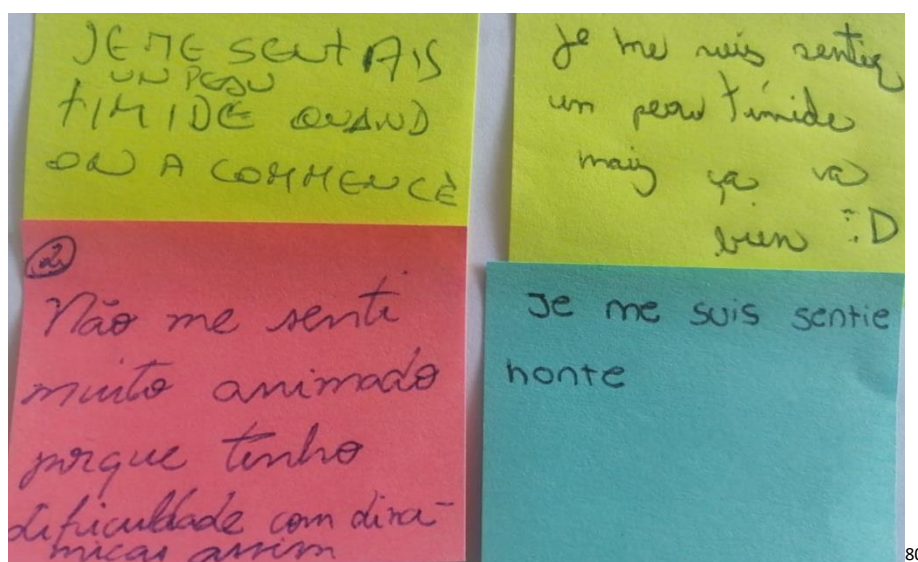 JE ME SENTAIS
UN PEAU
TIMIDE QUAND
ON A COMMENCÈ
Je me suis sentie
un peau timide
mais ça va
bien :D
2
Não me senti
muito animado
porque tenho
dificuldade com dinâ-
micas assim
Je me suis sentie
honte
80